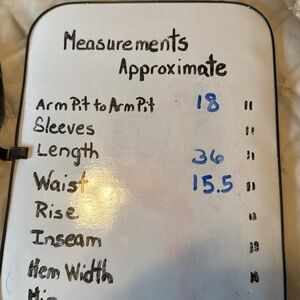 Measurements
Approximate
Arm Pit to Arm Pit 18 "
Sleeves "
Length 36 "
Waist 15.5 "
Rise "
Inseam "
Hem Width "